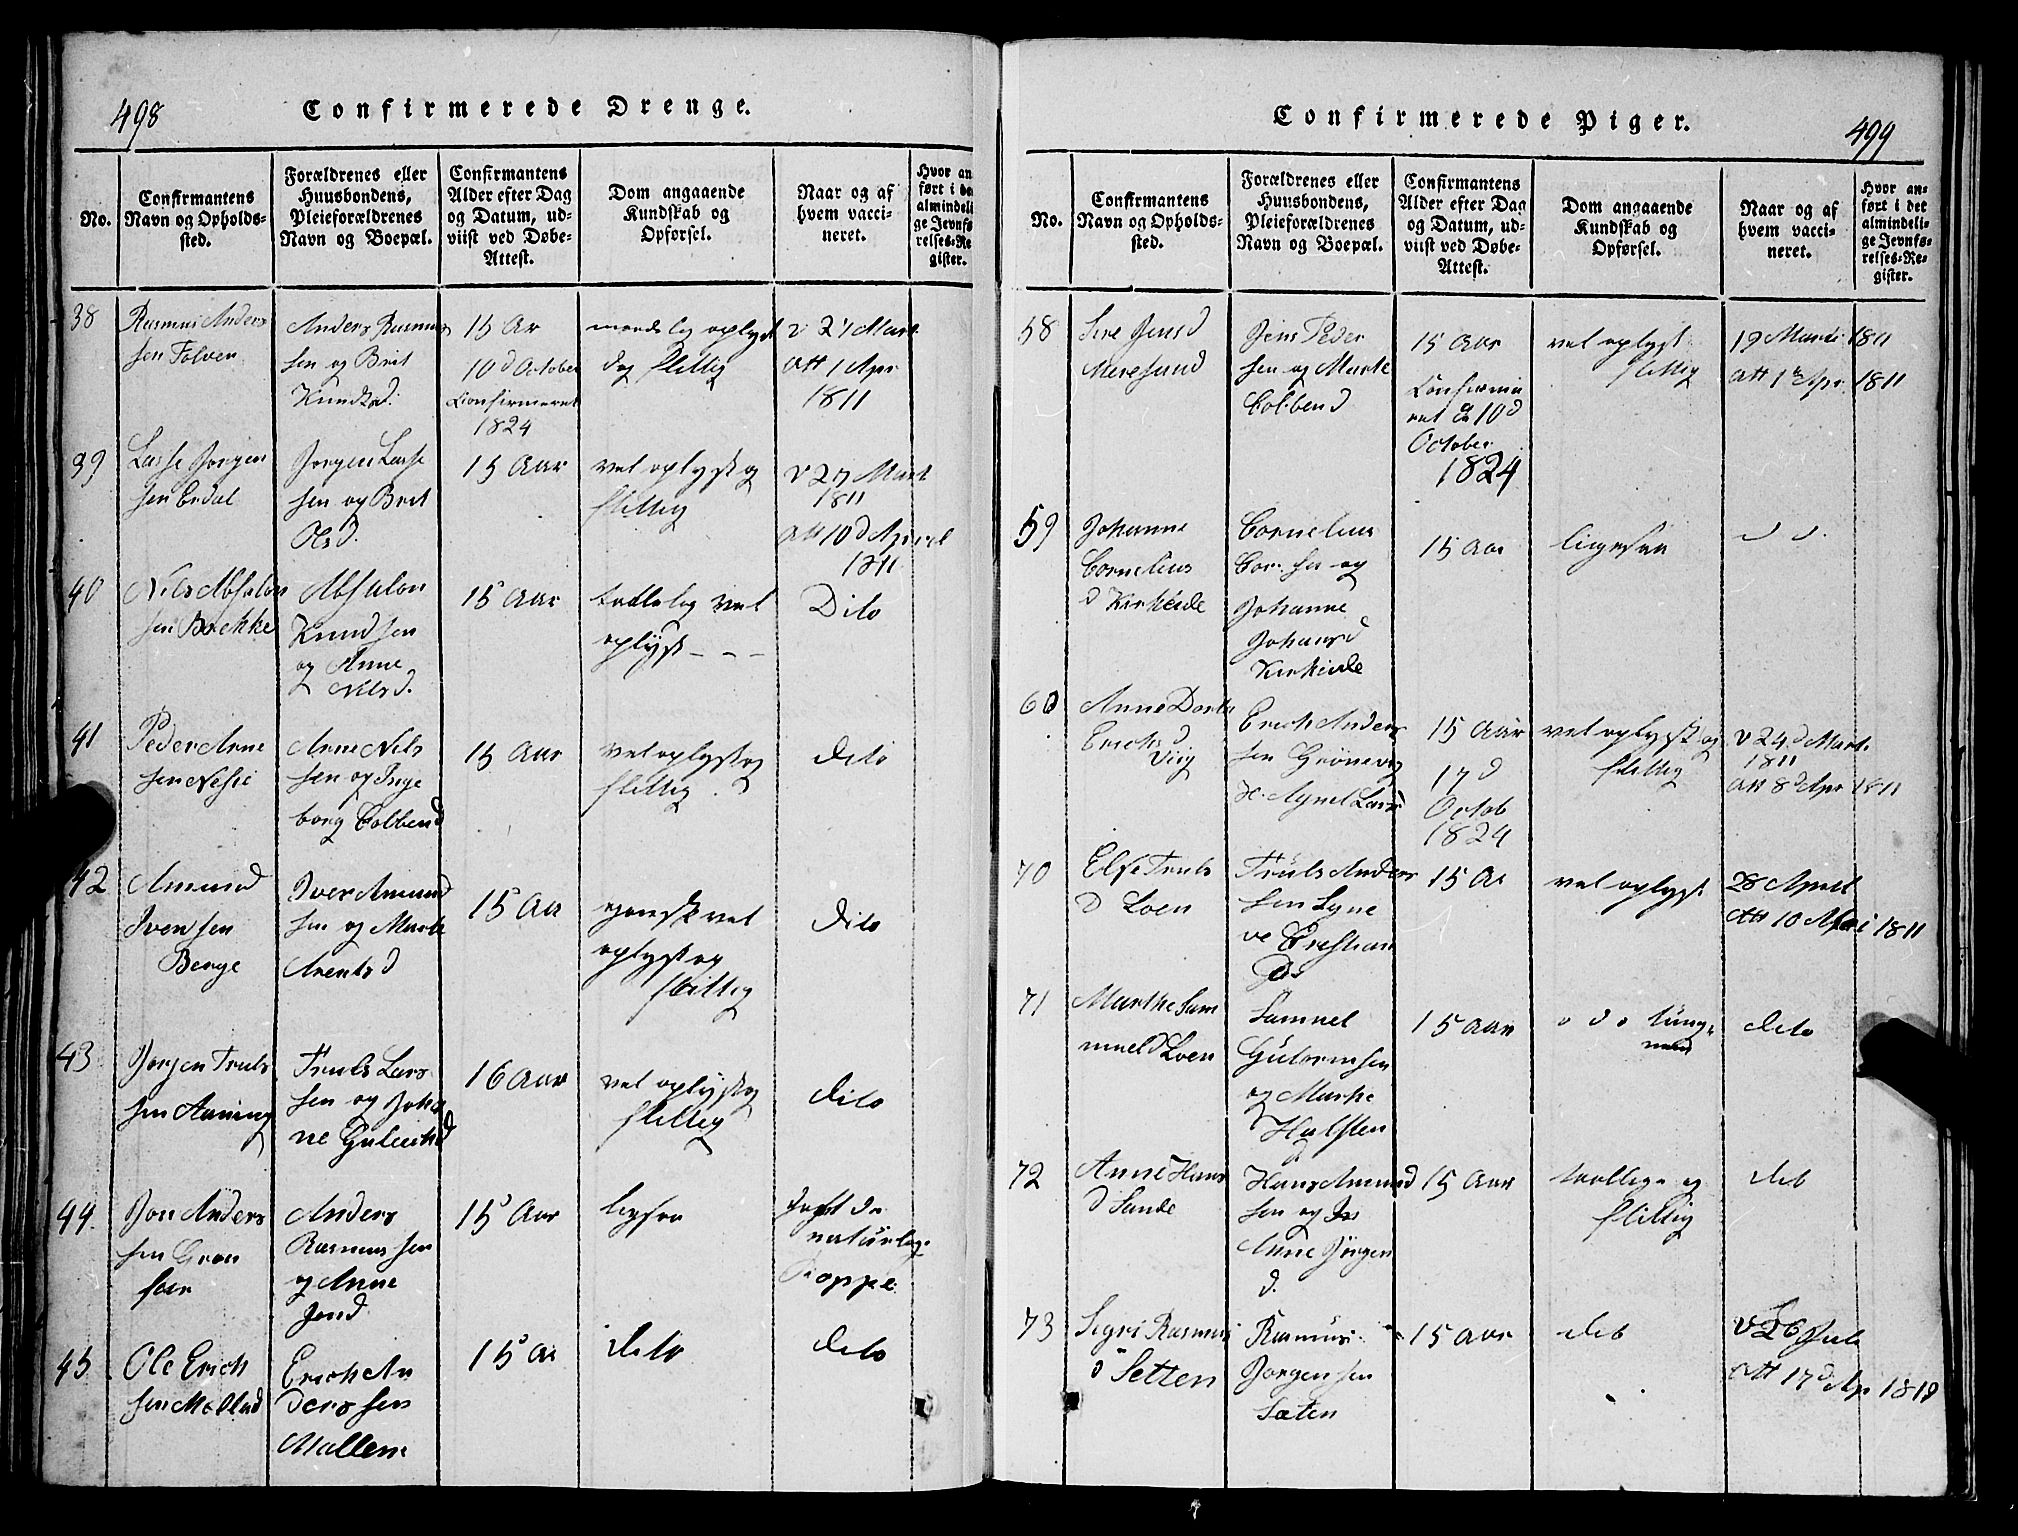 498
Confirmerede Drenge.
No.
Confirmantens
Navn og Opholds-
sted.
Forældrenes eller
Huusbondens,
Pleieforældrenes
Navn og Boepæl.
Confirmantens
Alder efter Dag
og Datum, ud-
viist ved Døbe-
Attest.
Dom angaaende
Kundskab og
Opførsel.
Naar og af
hvem vacci-
neret.
Hvor an
ført i de
almindeli
ge Jevnfø
relses-Re
gister.
38
Rasmus Anders
sen Folven
Anders Rasmus
sen og Brit
Knudsd.
15 Ar
10d October
Confirmeret
1824
oplyst
dog flittig
v 27 Mart
Att 1 Apr
1811
39
Lasse Jørgen
sen Erdal
Jørgen Lasse
sen og Brit
Olsd.
15 Aar
vel oplyst og
flittig
v 27 Mart
1811
Att 10d Apriil
1811
40
Nils Absalon
sen Bække
Absalon
Knudsen
og Anne
Nilsd.
15 Aar
vel
oplyst - - -
Dito
41
Peder Arne
sen Nesse
Arne Nils
sen og Inge
borg Colbend
15 Aar
vel oplyst og
flittig . d
dito
42
Amund
Iversen
Berge
Iver Amund
sen og Marte
Arentsd
15 Aar
ganske vel
oplyst og
flittig
dito
43
Jørgen Truls
sen Aaning
Truls Lars
sen og Joha
ne Guleichsd
16 Aar
vel oplyst og
flittig
dito
44.
Jon Anders
sen Gran
for
Anders
Rasmussen
og Anne
Jonsd.
15 Aar
ligesaa
haft de
naturlige
Koppe
45
Ole Erich
sen Melled
Erich An
derssen
Mallem
15 Ar
dito
dito
Confirmerede Piger.
499
No.
Confirmantens
Navn og Opholds-
sted.
Forældrenes eller
Huusbondens,
Pleieforældrenes
Navn og Boepæl.
Confirmantens
Alder efter Dag
og Datum, ud-
viist ved Døbe-
Attest.
Dom angaaende
Kundskab og
Opførsel.
Naar og af
hvem vacci-
neret.
Hvor an-
ført i det
almindeli-
ge Jevnfø-
relses-Re-
gister.
58
Sire Jensd
Meresund
Jens Peder
sen og Marte
Colbend
15 Aar
Confirme
ret 10d
October
1824
vel oplyst
flittig
19 Marti 1811
Att 1 Apr. 1811
59
Johanne
Cornelius
d Kirkeide
Cornelius
Cor. sen og
Johanne
Johansd
Kirkeide
15 Aar
ligesaa
d d.
60
Anne Dorte
Erichsd
Viig
Erich Anders
sen Grønevig
15 Aar
17d
Octob
1824
vel oplyst og
flittig
v 24d Mart.
1811
Att 8d Apr 1811
70
Else Truls
d Loen
Truls Anders
sen
Crestian
15 Ar
vel oplyst
28 April
Att 10 Mai 1811
71
Marthe Sam
mueld Loen
Samuel
Gutormsen
og Marthe
Halsten
d
15 Aar
dito
72
Anne Hans
d Sande
Hans Amund
sen og
Anne Jørgen
d.
15 Aar
flittig
dito
73
Sigri Rasmus
d Setten
Rasmus
Jørgensen
Sæten
15 Aar
dito
v 26 Juli
Att 17d Ap 1818